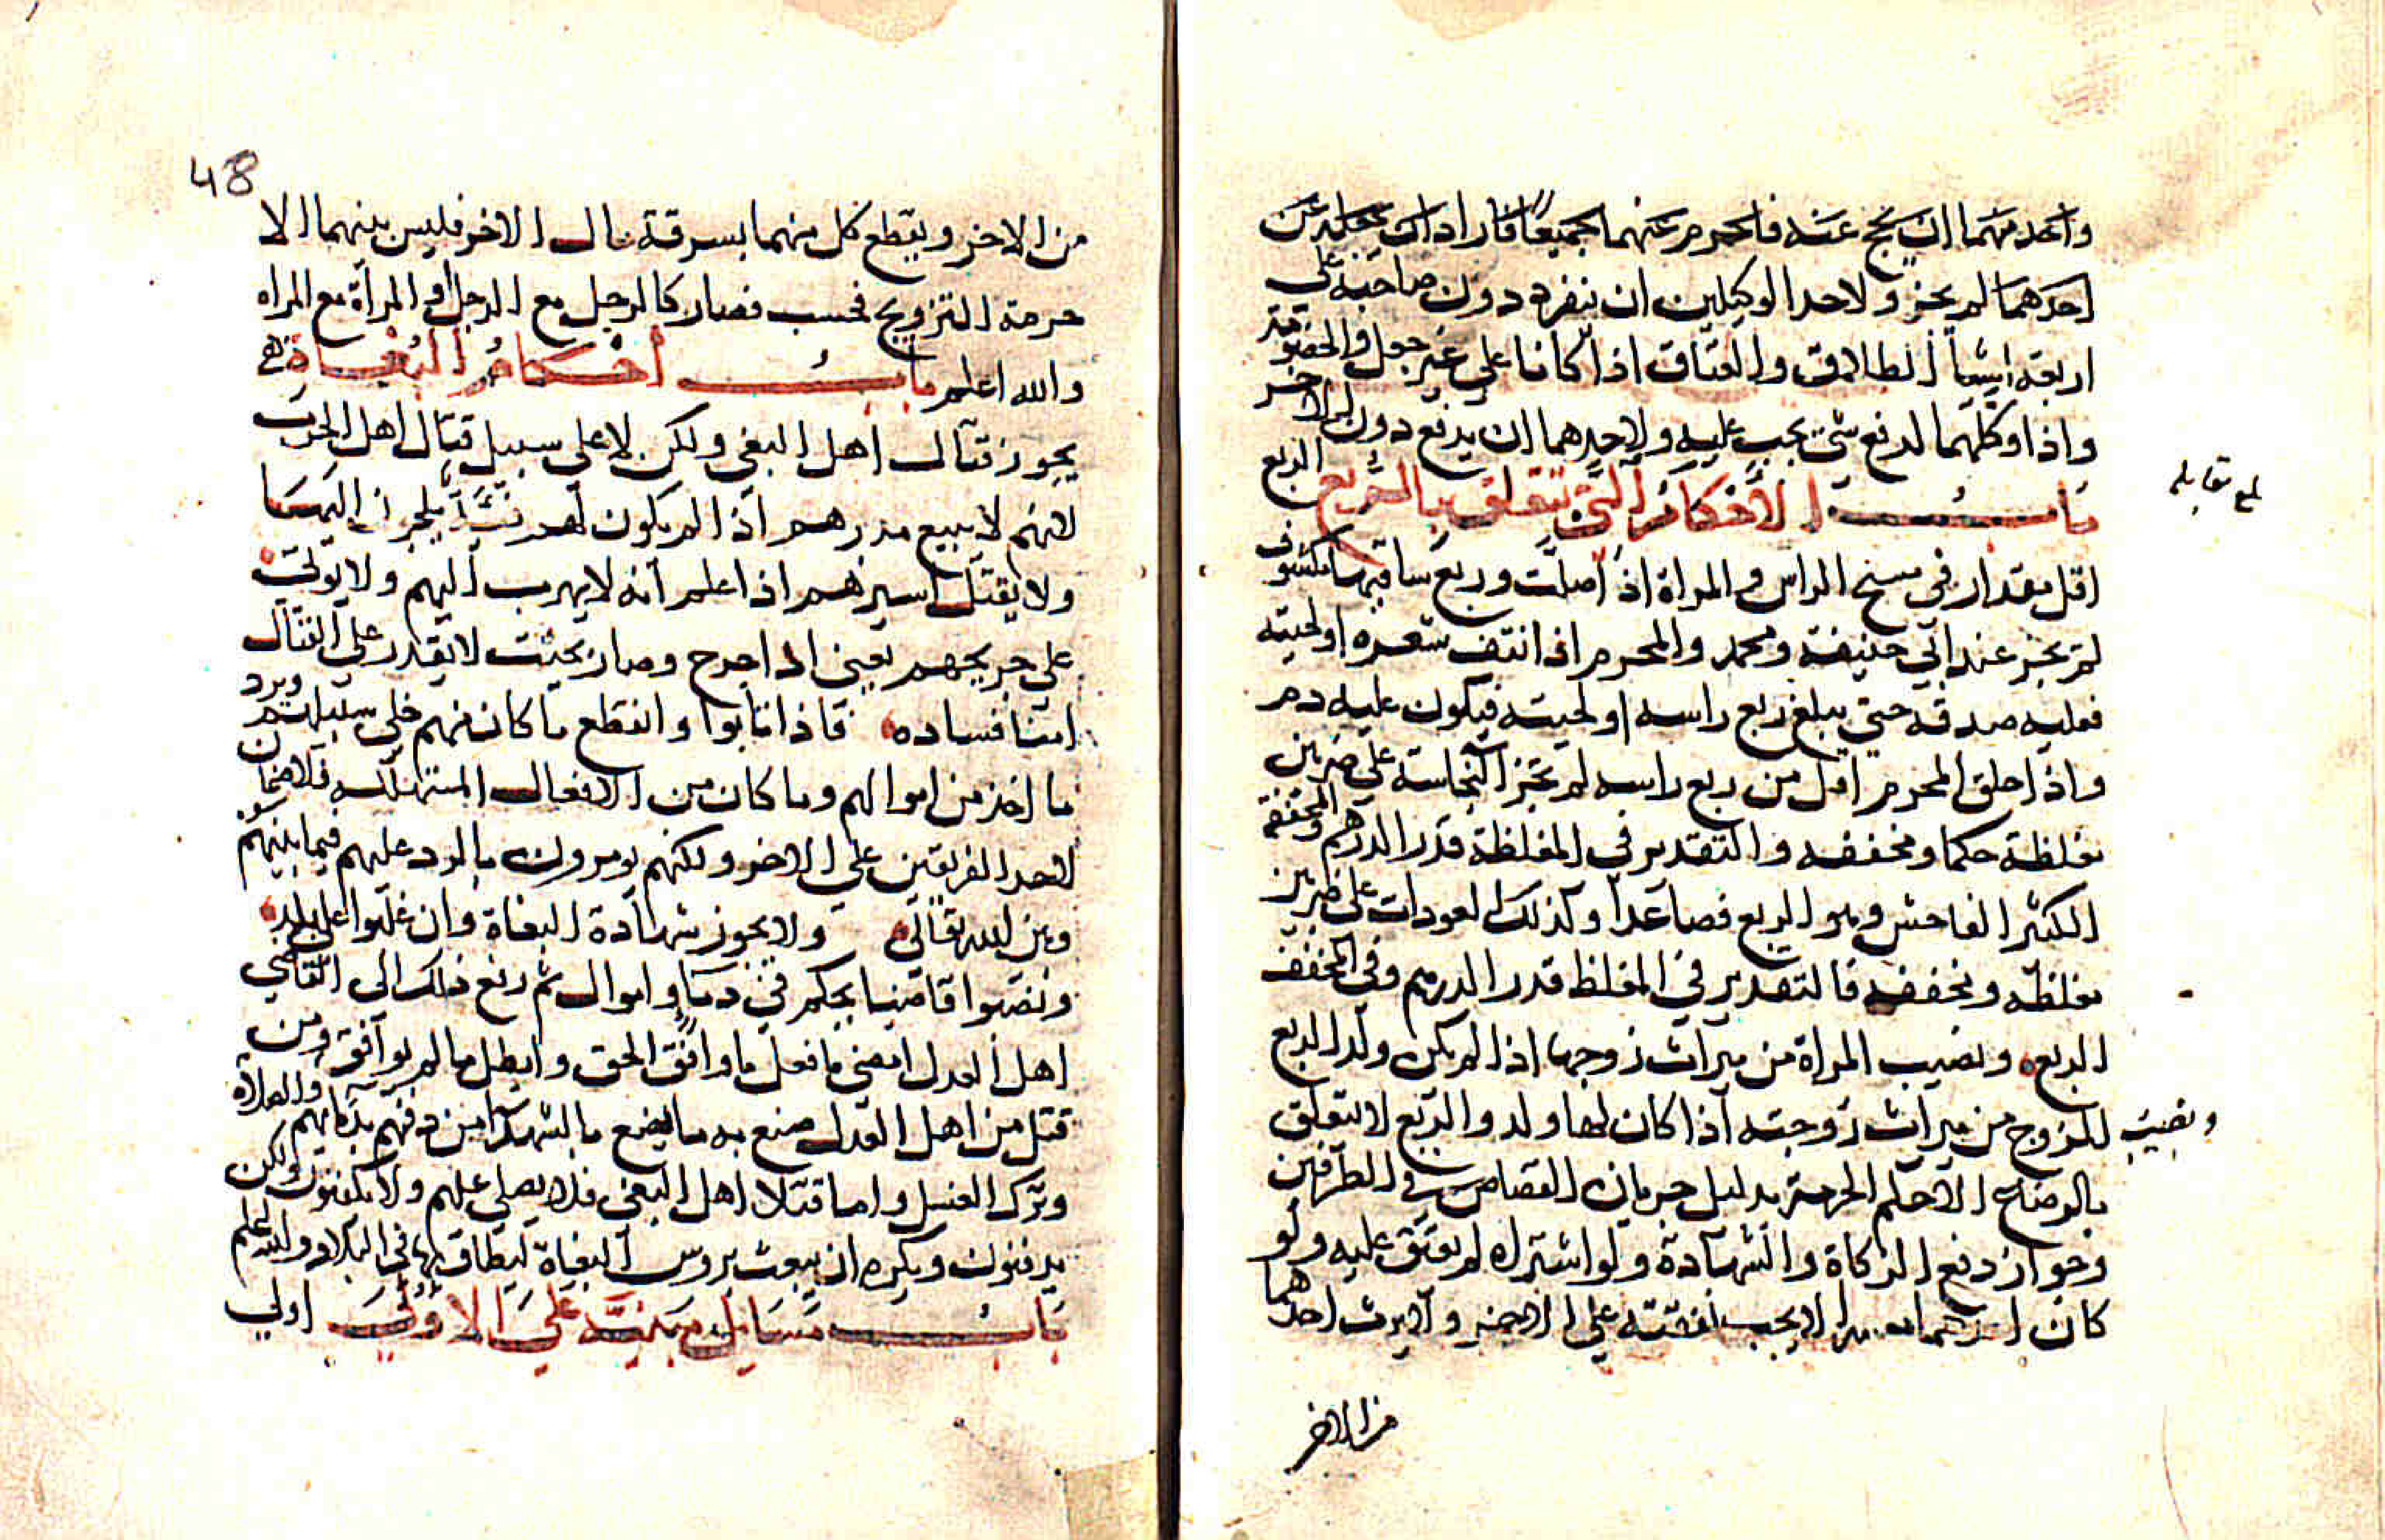 واحد منهما ان يحج عنه فاحرم عنهما جميعا فاراد ان يجعله عن
احدهما لم يجز ولاحد الوكيلين ان ينفرد دون صاحبه في
اربعة اشيا الطلاق والعتاق اذا كانا على غير جعل والخصومة
واذا وكلهما لدفع شي يجب عليه ولاحدهما ان يدفع دون الاخر
باب الاحكام التي تتعلق بالربع الربع
بلغ مقابله
اقل مقدار في مسح الراس والمراة اذا صلت وربع ساقيها مكشوف
لم يجز عند ابي حنيفة ومحمد والمحرم اذا نتف شعره او لحيته
فعليه صدقه حتى يبلغ ربع راسه او لحيته فيكون عليه دم
واذا حلق المحرم اقل من ربع راسه لم يجز النجاسة على ضربين
مغلظة حكما ومخففه والتقدير في المغلظة قدر الدرهم والمخففة
الكثير الفاحش وهو الربع فصاعدا وكذلك العورات على ضربين
مغلظه ومخففه فالتقدير في المغلظ قدر الدرهم وفي المخفف
الربع ونصيب المراة من ميراث زوجها اذا لم يكن ولد الربع
ونصيب الزوج من ميراث زوجته اذا كان لها ولد والربع لا يتعلق
بالرضاع الا حكم الحرمة بدليل جريان القصاص في الطرفين
وجواز دفع الزكاة والشهادة ولو اشتراه لم يعتق عليه ولو
كان لا يجب نفقته على الاخر ولا يرث احدهما
من الاخر
48
من الاخر ويقطع كل منهما بسرقة مال الاخر فليس بينهما الا
حرمة التزويج فحسب فصار كالرجل مع الرجل او المرأة مع المراه
والله اعلم باب أحكام البغاة
يجوز قتال اهل البغي ولكن لا على سبيل قتال اهل الحرب
لانهم لا يبيع اذا لم يكون لهم اليها
ولا يقتل اسيرهم اذا علم انه لا يهرب اليهم ولا يولي
على جريحهم يعني اذا جرح وصار بحيث لا يقدر على القتال
امنا فساده فاذا تابوا وانقطع ما كان منهم خلي سبيلهم ويرد
ما اخذ من اموالهم وما كان من الافعال المستهلكه فلا ضمان
لاحد الفريقين على الاخر ولكنهم يومرون بالرد عليهم فيما بينهم
وبين الله تعالى ولا يجوز شهادة البغاة وان غلبوا على بلد
ونصبوا قاضيا يحكم في دما واموال ثم رفع ذلك الى القاضي
اهل العدل امضى ما فعل ما وافق الحق وابطل ما لم يوافق ومن
قتل من اهل العدل صنع به ما يصنع بالشهدا من دفنهم بدمايهم والصلاة
وترك الغسل واما قتلا اهل البغي فلا يصلي عليهم ولا يكفنون ولكن
يدفنون ويكره ان يبعث بروس البغاة ليطاف بها في البلاد والله اعلم
باب مسايل مبنية على الاولى اولي